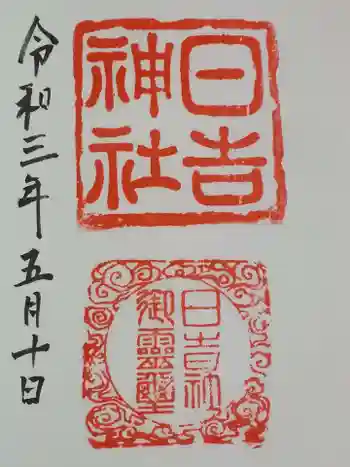 日吉
神社
日吉社
御靈璽
令和三年五月十日